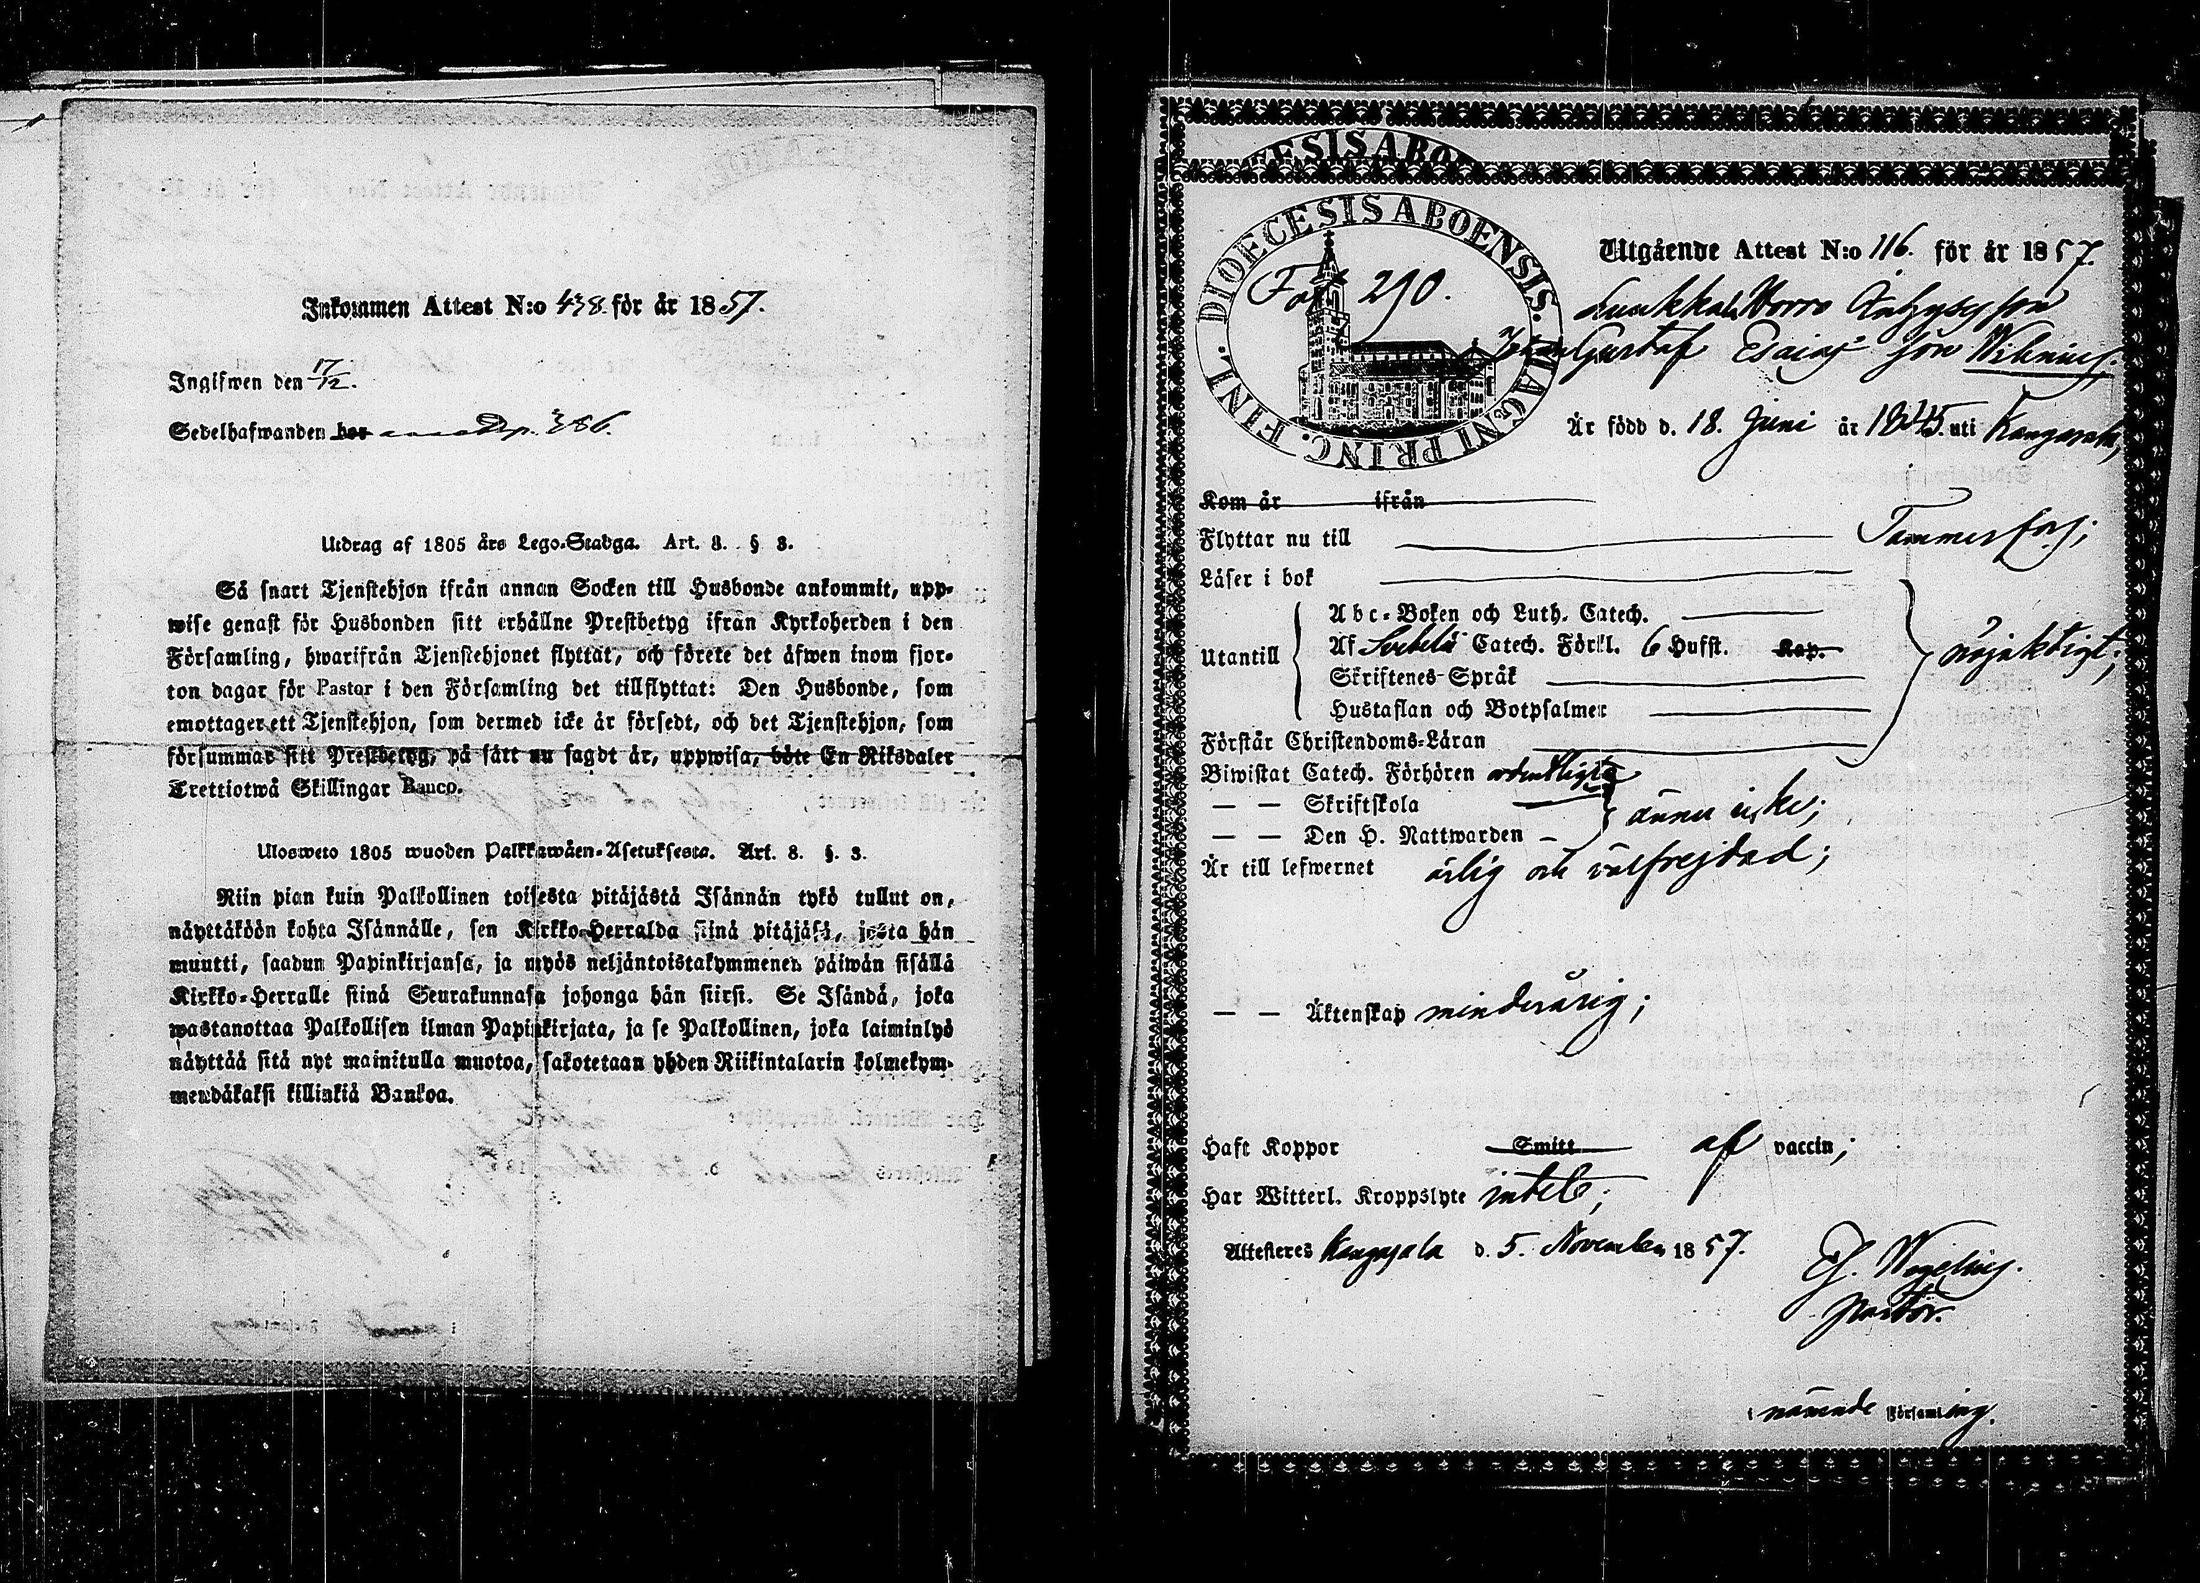 Inkommen Attest N:o 438. för år 1857.
Ingifwen den 17/12.
Sedelhafwanden har p. 386.
Utdrag af 1805 års Lego-Stadga. Art. 8. § 3.
Så snart Tjenstehjon ifrån annan Socken till Husbonde ankommit, upp-
wise genast för Husbonden sitt erhållne Prestbetyg ifrån Kyrkoherden i den
Församling, hwarifrån Tjenstehjonet flyttat, och förete det äfwen inom fjor-
ton dagar för Pastor i den Församling det tillflyttat: Den Husbonde, som
emottager ett Tjenstehjon, som dermed icke är försedt, och det Tjenstehjon, som
försummar sitt Prestbetyg, på sätt nu sagdt är, uppwisa, böte En Riksdaler
Trettiotwå Skillingar Banco.
Ulosweto 1805 wuoden Palkkawäen-Asetuksesta. Art. 8. §. 3.
Niin pian kuin Palkollinen toisesta pitäjästä Isännän tykö tullut on,
näyttäköön kohta Isännälle, sen Kirkko-Herralda siinä pitäjäsä, josta hän
muutti, saadun Papinkirjansa, ja myös neljäntoistakymmenen päiwän sisällä
Kirkko-Herralle siinä Seurakunnasa johonga hän siirsi. Se Isändä, joka
wastanottaa Palkollisen ilman Papinkirjata, ja se Palkollinen, joka laiminlyö
näyttää sitä nyt mainitulla muotoa, sakotetaan yhden Riikintalarin kolmekym-
mendäkaksi killinkiä Bankoa.
ESIS ABO
DIOECESIS ABOENSIS. MAGNI PRINC. FINL.
Fol. 290.
Utgående Attest N:o 116. för år 1857.
Johan Gustaf Esaias son Wilenius,
Är född d. 18. Juni år 1845. uti Kangasala,
Kom år ifrån
Flyttar nu till Tammerfors;
Läser i bok
Utantill
Abc-Boken och Luth. Catech.
Af Svebelii Catech. Förkl. 6 Hufst. Kap.
Skriftenes Språk
Hustaflan och Botpsalmer
nöjaktigt;
Förstår Christendoms-Läran
Biwistat Catech. Förhören ordentligt
— — Skriftskola
— — Den H. Nattwarden
ännu icke;
Är till lefwernet ärlig och välfrejdad;
— — Äktenskap minderårig;
Haft Koppor Smitt af vaccin;
Har Witterl. Kroppslyte intet;
Attesteres Kangasala d. 5. November 1857.
Pastor.
i närande Församling.